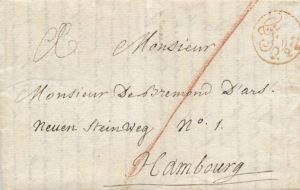 A Monsieur
Monsieur De Bremond D'ars.
Neuen Stein Weg N.º 1.
Hambourg